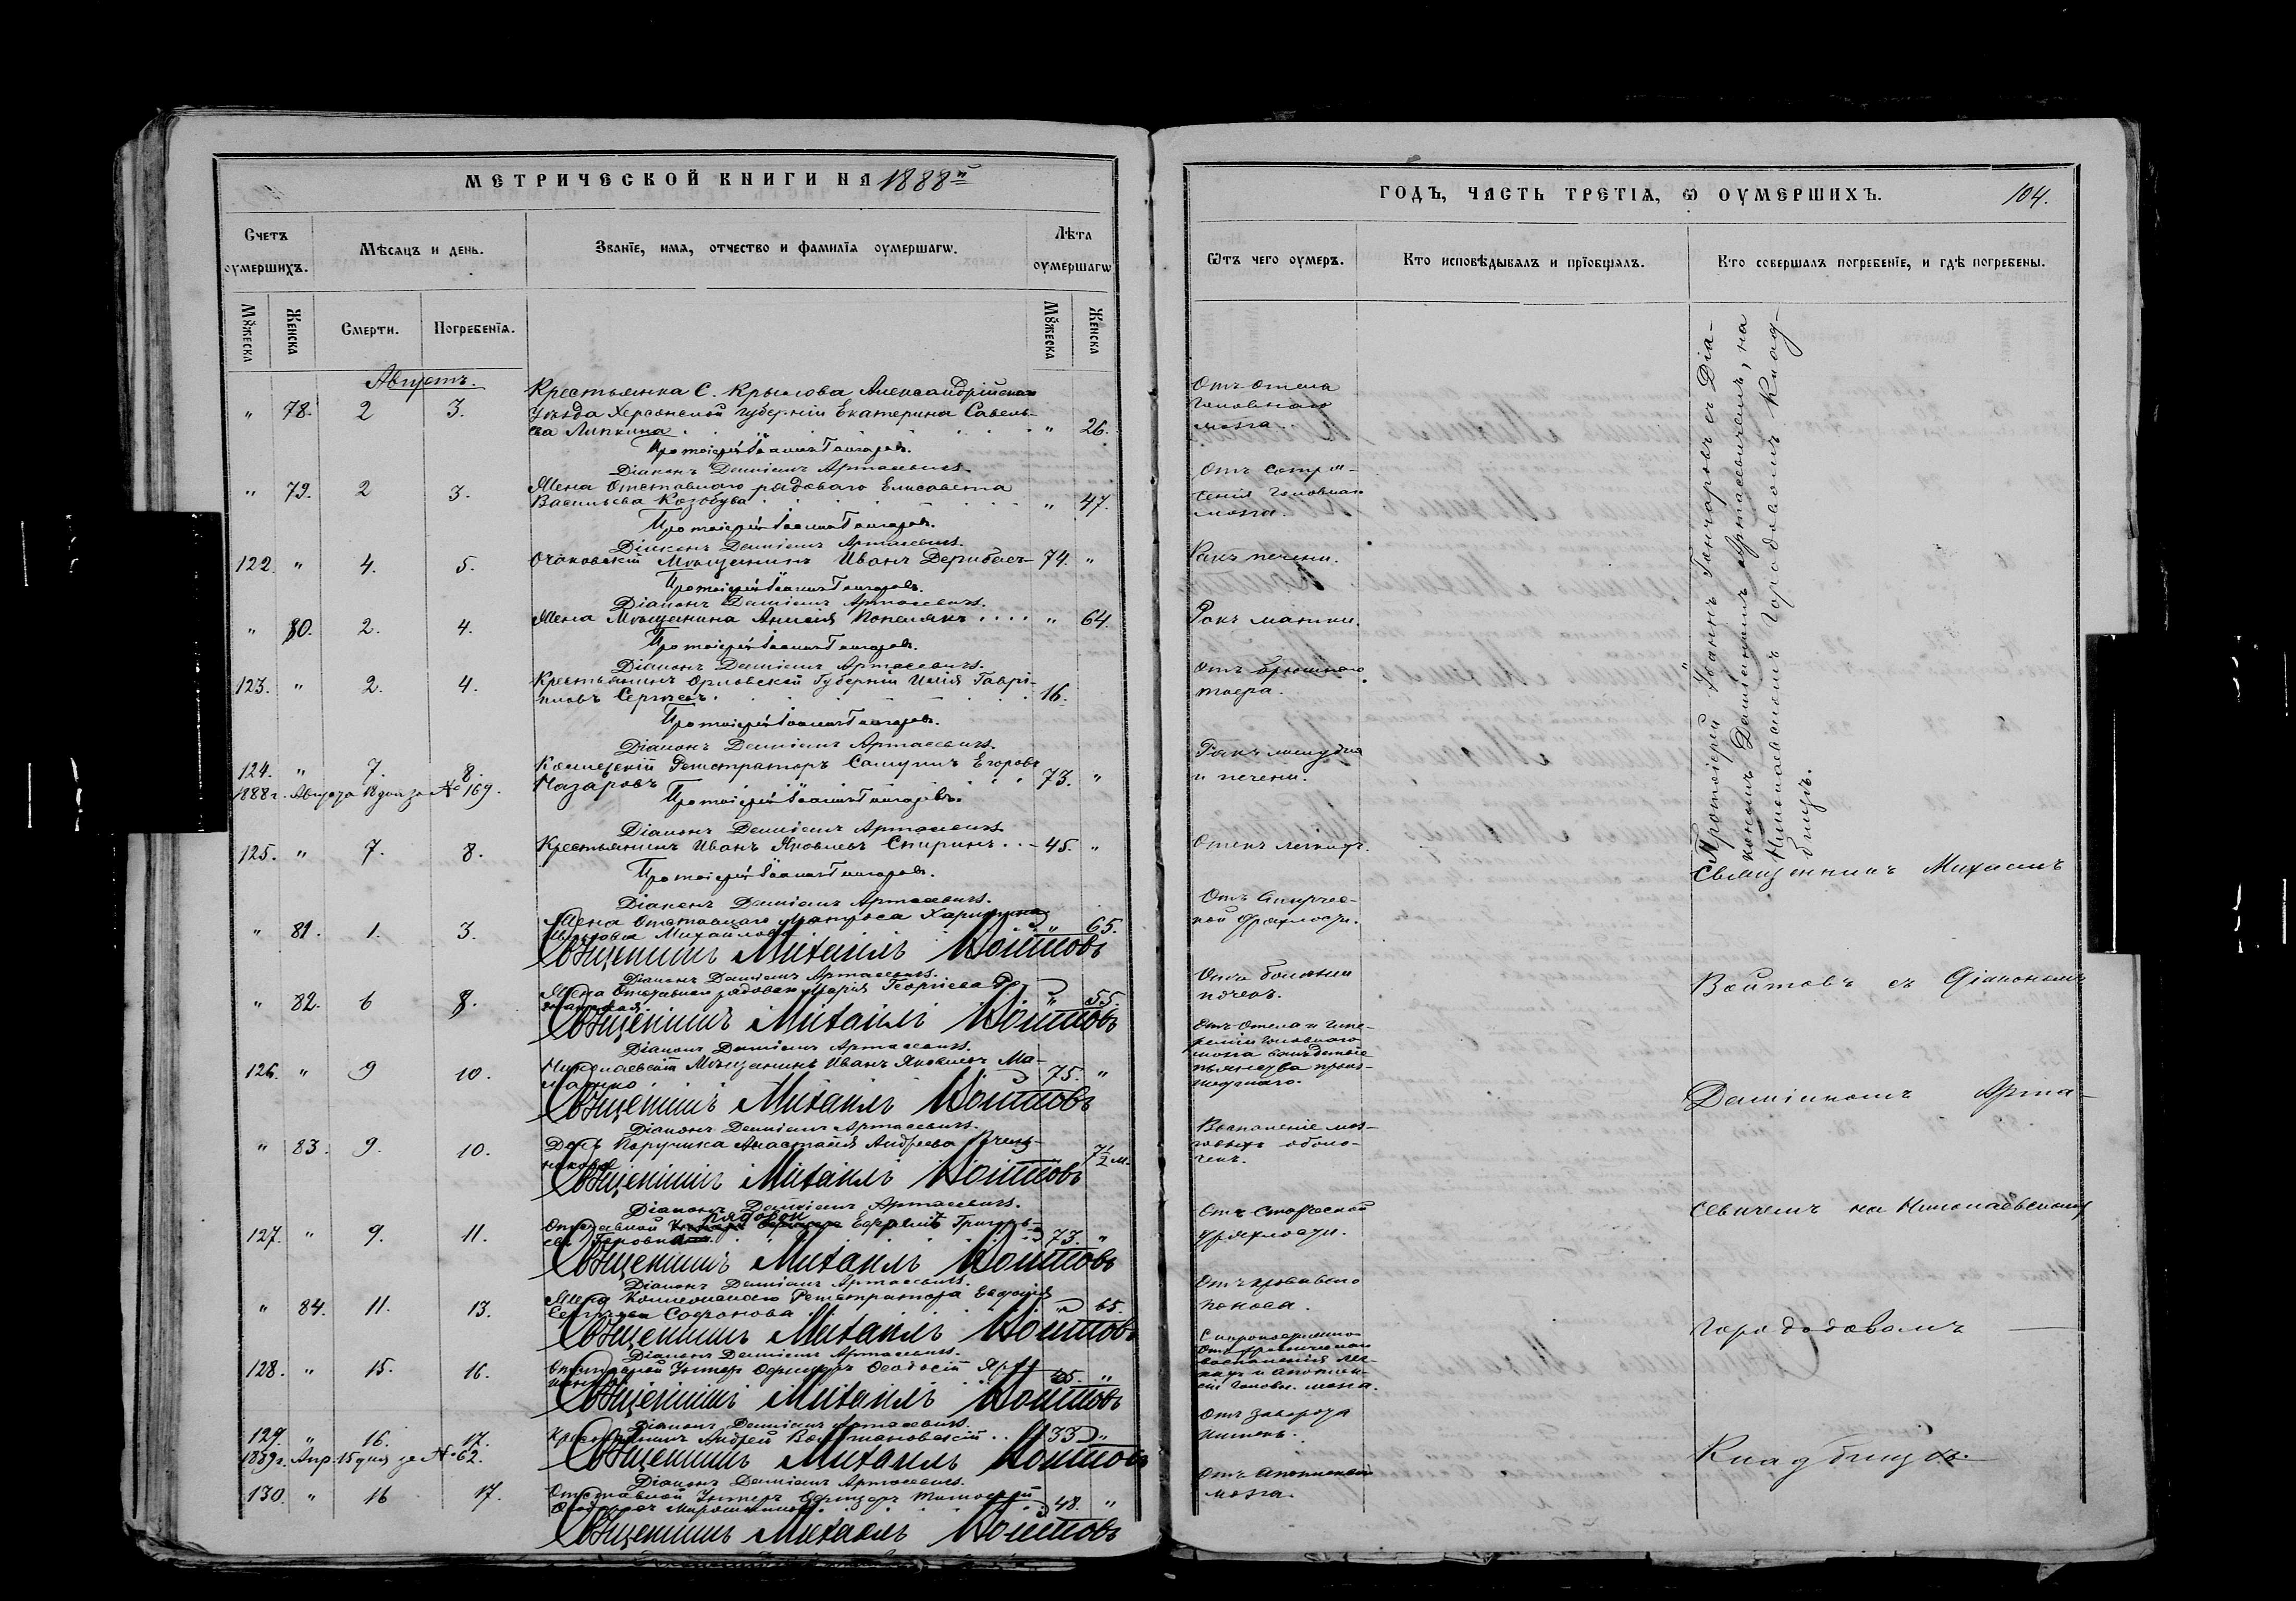 МЕТРИЧЕСКОЙ КНИГИ НА 1888й
Счетъ оумершихъ.
Мѣсяцъ и день.
Званіе, имя, отчество и фамилія оумершагѡ.
Лѣта оумершагѡ
Мꙋжеска
Женска
Смерти.
Погребенія.
Мꙋжеска
Женска
Августъ.
" 78. 2 3. Крестьянка С. Крылова Александрійскаго
Уѣзда Херсонской Губерніи Екатерина Савель-
ева Липкина " 26.
Протоіерей Іоаннъ Гончаровъ.
Діаконъ Даміанъ Артасевичъ.
" 79. 2 3. Жена Отставнаго рядоваго Елисавета
Васильева Козобува " 47.
Протоіерей Іоаннъ Гончаровъ.
Діаконъ Даміанъ Артасевичъ.
122. " 4. 5. Очаковскій Мѣщанинъ Иванъ Дерибасъ 74. "
Протоіерей Іоаннъ Гончаровъ.
Діаконъ Даміанъ Артасевичъ.
" 80. 2. 4. Жена Мѣщанина Анисія " 64.
Протоіерей Іоаннъ Гончаровъ.
Діаконъ Даміанъ Артасевичъ.
123. " 2. 4. Крестьянинъ Орловской Губерніи Илія Гаврі-
иловъ Сергѣевъ 16.
Протоіерей Іоаннъ Гончаровъ.
Діаконъ Даміанъ Артасевичъ.
124. " 7. 8. Коллежскій Регистраторъ Самуилъ Егоровъ
1888 г. Августа 18 дня за № 169. Назаровъ 73. "
Протоіерей Іоаннъ Гончаровъ.
Діаконъ Даміанъ Артасевичъ.
125. " 7. 8. Крестьянинъ Иванъ Яковлевъ Спиринъ 45. "
Протоіерей Іоаннъ Гончаровъ.
Діаконъ Даміанъ Артасевичъ.
" 81. 1. 3. Жена Отставнаго Матроса
Михайлова " 65.
Священникъ Михаилъ Войтовъ
Діаконъ Даміанъ Артасевичъ.
" 82. 6 8. Жена Отставнаго рядоваго Марія Георгіева
" 55.
Священникъ Михаилъ Войтовъ
Діаконъ Даміанъ Артасевичъ.
126. " 9 10. Николаевскій Мѣщанинъ Иванъ Яковлевъ Ма-
75. "
Священникъ Михаилъ Войтовъ
Діаконъ Даміанъ Артасевичъ.
" 83. 9. 10. Дочь Поручика Анастасія Андреева
7 1/2 м.
Священникъ Михаилъ Войтовъ
Діаконъ Даміанъ Артасевичъ.
127. " 9. 11. Отставной рядовой Григорь-
евъ 73. "
Священникъ Михаилъ Войтовъ
Діаконъ Даміанъ Артасевичъ.
" 84. 11. 13. Жена Коллежскаго Регистратора Евфимія
Сергѣева Софронова " 65.
Священникъ Михаилъ Войтовъ
Діаконъ Даміанъ Артасевичъ.
128. " 15. 16. Отставной Унтеръ Офицеръ Феодосій
"
Священникъ Михаилъ Войтовъ
Діаконъ Даміанъ Артасевичъ.
129. " 16. 17. Крестьянинъ Андрей 33 "
1889 г. Апр. 15 дня за № 62.
Священникъ Михаилъ Войтовъ
Діаконъ Даміанъ Артасевичъ.
130. " 16 17. Отставной Унтеръ Офицеръ Тимофей
48. "
Священникъ Михаилъ Войтовъ
ГОДЪ, ЧАСТЬ ТРЕТІЯ, Ѡ ОУМЕРШИХЪ.
104.
Ѿтъ чего оумеръ.
Кто исповѣдывалъ и пріобщалъ.
Кто совершалъ погребеніе, и гдѣ погребены.
Отъ отека
головнаго
мозга.
Отъ сотря-
сенія головнаго
мозга.
Ракъ печени.
Ракъ матки.
Отъ брюшнаго
тифа.
Ракъ желудка
и печени.
Отекъ легкихъ.
Отъ старчес-
кой дряхлости.
Отъ болѣзни
почекъ.
Отъ отека и гипе-
реміи головнаго
мозга вслѣдствіе
пьянства проис-
шедшаго.
Воспаленіе моз-
говыхъ оболо-
чекъ.
Отъ старческой
дряхлости.
Отъ кроваваго
поноса.
воспаленія лег-
кихъ и апоплек-
сіи головн. мозга.
Отъ заворота
кишекъ.
Отъ апоплексіи
мозга.
Протоіерей Іоаннъ Гончаровъ съ Діа-
кономъ Даміаномъ Артасевичемъ, на
Николаевскомъ Городовомъ Клад-
бищѣ.
Священникъ Михаилъ
Войтовъ съ Діакономъ
Даміаномъ Арта-
севичемъ на Николаевскомъ
Городовомъ
Кладбищѣ.